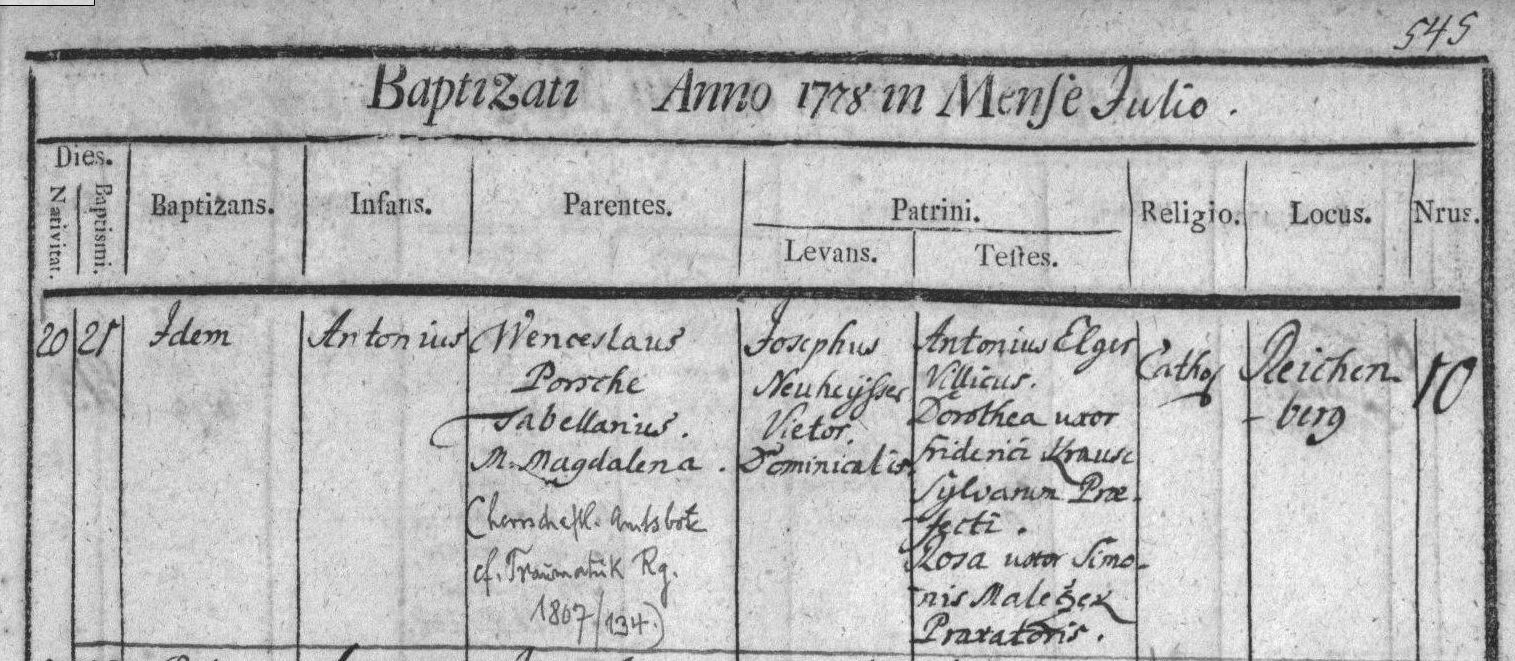 545
Baptizati Anno 1778 in Mense Julio.
Dies.
Nativitat.
Baptismi.
Baptizans.
Infans.
Parentes.
Patrini.
Levans.
Testes.
Religio.
Locus.
Nrus.
20
21
Idem
Antonius
Wenceslaus
Porsche
Tabellarius.
M. Magdalena.
(herrschaftl. Amtsbote
cf. Traumatrik Rg.
1807/134.)
Josephus
Neuheÿsser
Vietor.
Dominicalis.
Antonius Elger
Villicus.
Dorothea uxor
Friderici Krause
Sylvarum Præ-
fecti.
Rosa uxor Simo-
nis
Braxatoris.
Cathol
Reichen-
-berg
10